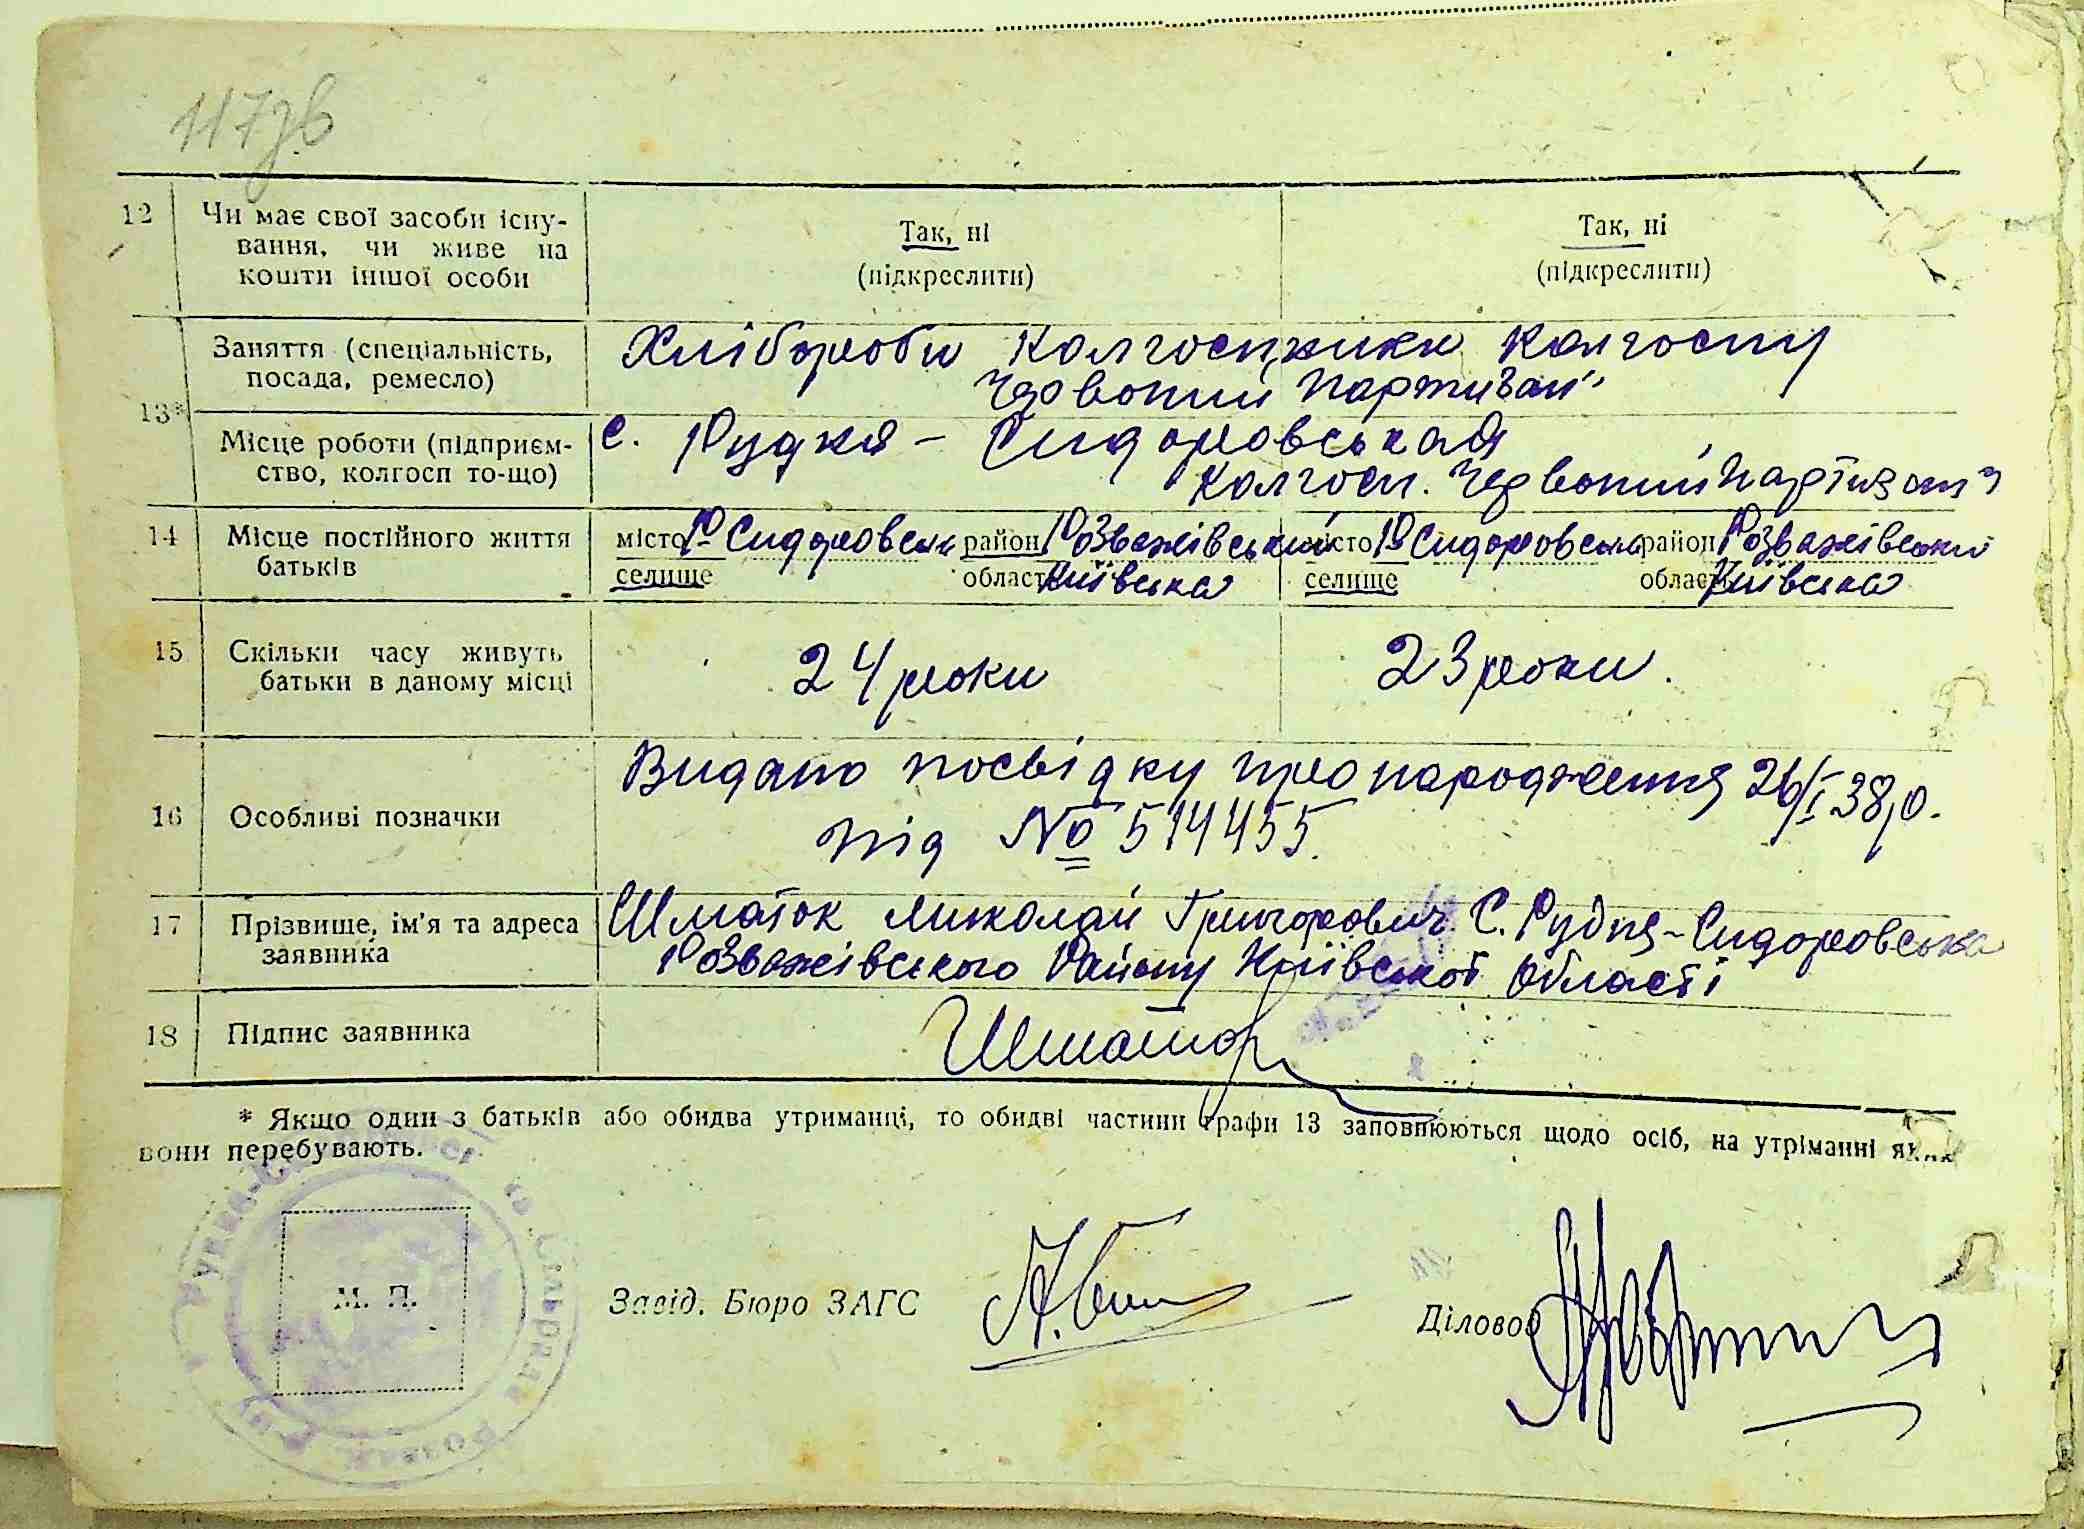 117зв
12
Чи має свої засоби існу-
вання, чи живе на
кошти іншої особи
Так, ні
(підкреслити)
Так, ні
(підкреслити)
13*
Заняття (спеціальність,
посада, ремесло)
Хлібороби Колгоспники Колгоспу
"Червоний Партизан"
Місце роботи (підприєм-
ство, колгосп то-що)
с. Рудня - Сидоровськая
Колгосп. "Червоний Партизан"
14
Місце постійного життя
батьків
місто Р Сидоровськ район Розважівський
селище області Київська
місто Р Сидоровськ район Розважівський
селище області Київська
15
Скільки часу живуть
батьки в даному місці
24 роки
23 роки.
16
Особливі позначки
Видано посвідку про народження 26/I 38 р.
під № 514455.
17
Прізвище, ім'я та адреса
заявника
Шматок Миколай Григорович С. Рудня-Сидоровська
Розважівського Району Київської області
18
Підпис заявника
Шматок
* Якщо один з батьків або обидва утриманці, то обидві частини графи 13 заповнюються щодо осіб, на утріманні яких
вони перебувають.
М. П.
Завід. Бюро ЗАГС
Діловод